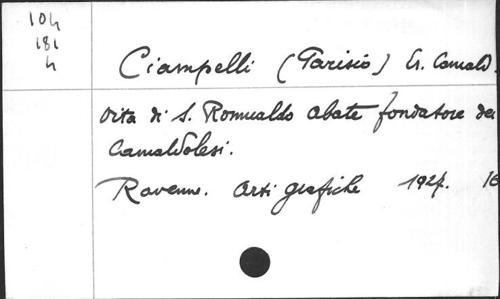 104
181
h
Ciampelli (Parisio) Er. Camald.
Vita di S. Romualdo abate fondatore dei
Camaldolesi.
Ravenna. Arti grafiche 1927. 16